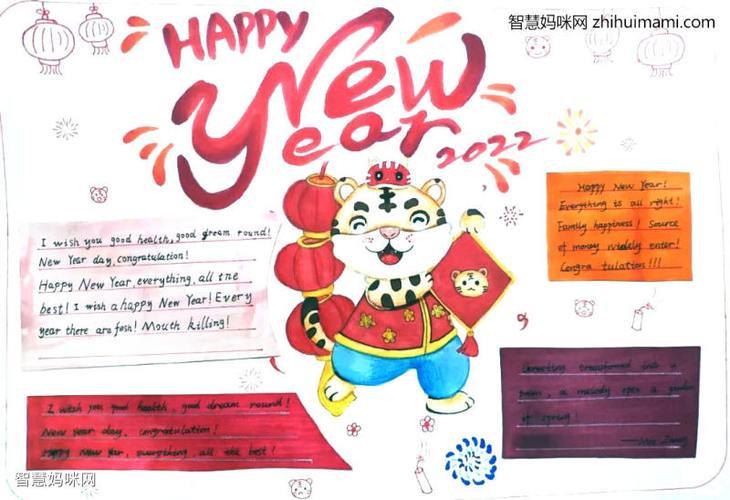 智慧妈咪网 zhihuimami.com
HAPPY
New
Year
2022
I wish you good health, good dream round!
New Year day, congratulation!
Happy New Year, everything, all the
best! I wish a happy New Year! Every
year there are fash! Mouth killing!
Happy New Year!
Everything is all right!
Family happiness! Source
of money widely enter!
Congra tulation!!!
I wish you good health, good dream round!
New Year day, congratulation!
Happy New Year, everything, all the best!
Greeting transformed into a
poem, a melody open a garden
of spring!
智慧妈咪网